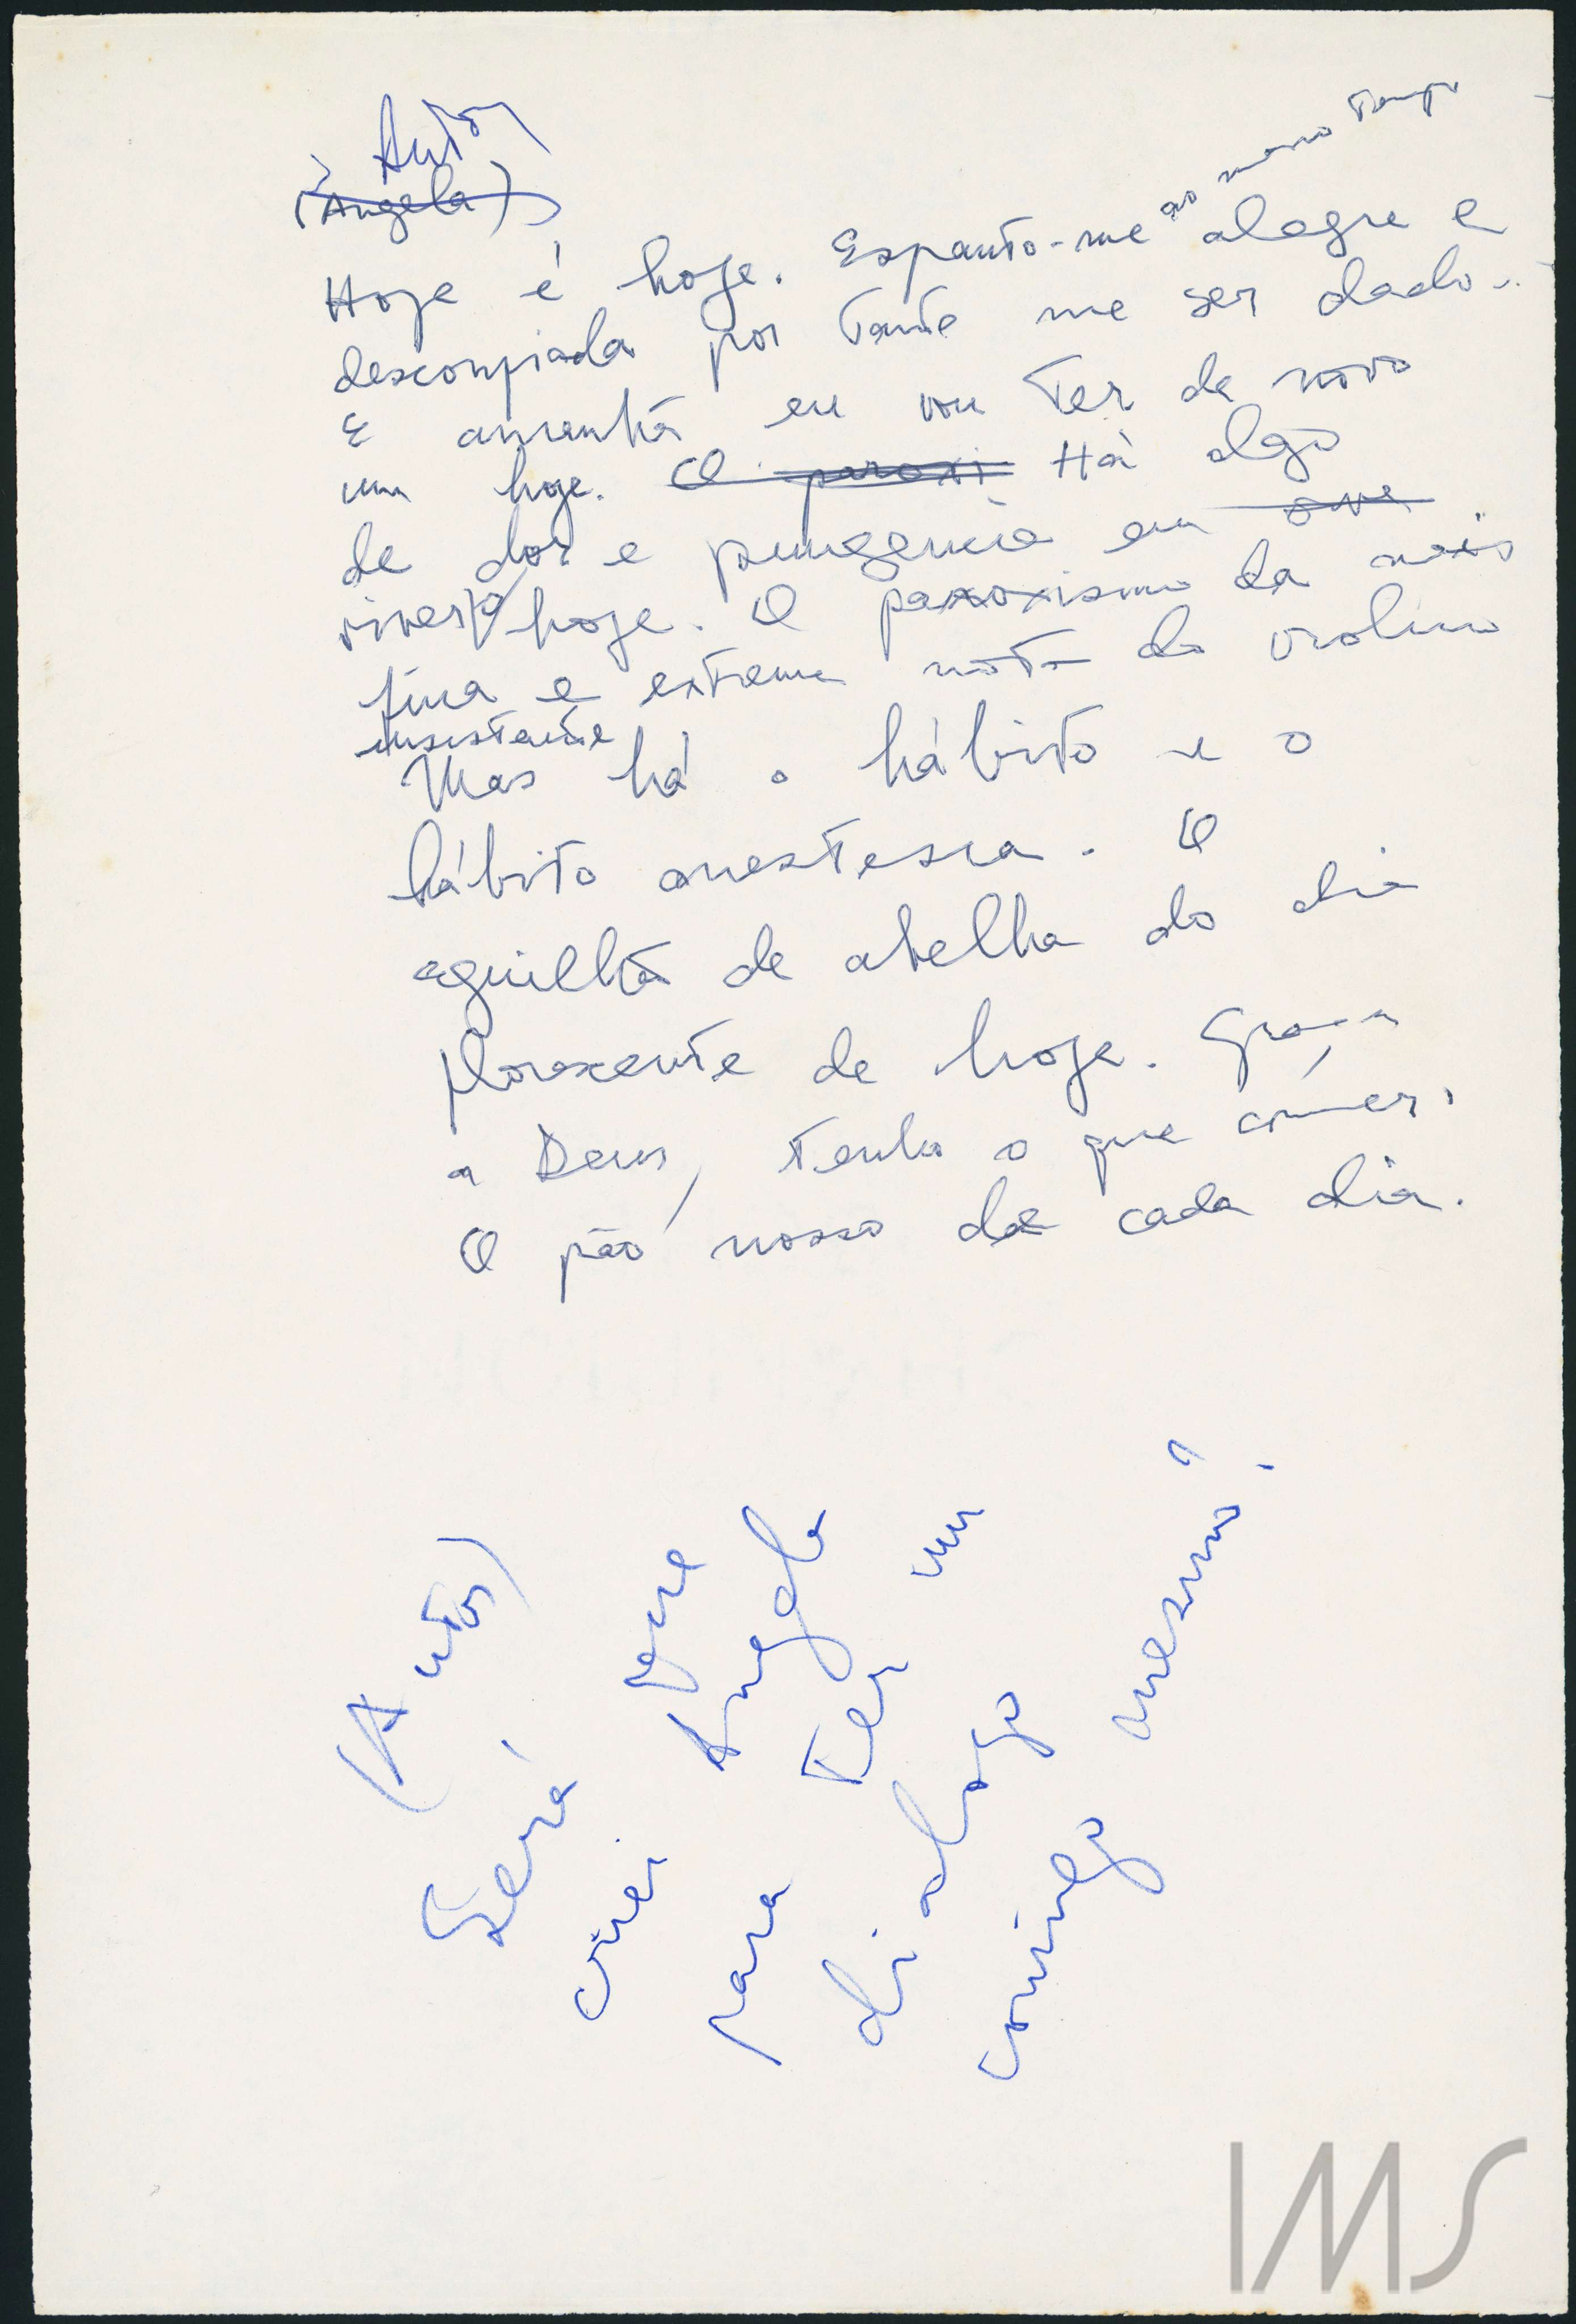 Autor
(Angela)
ao mesmo tempo
Hoje é hoje. Espanto-me alegre e
desconfiada por tanto me ser dado.
E amanhã eu vou ter de novo
um hoje. O paroxi Há algo
de dor e pungência em
viver o hoje. O paroxismo da mais
fina e extrema nota do violino
insistente
Mas há o hábito e o
hábito anestesia. O
aguilhão de abelha do dia
florescente de hoje. Graças
a Deus, tenho o que comer.
O pão nosso de cada dia.
(Autor)
Será que
criei Angela
para ter um
dialogo
comigo mesmo?
IMS